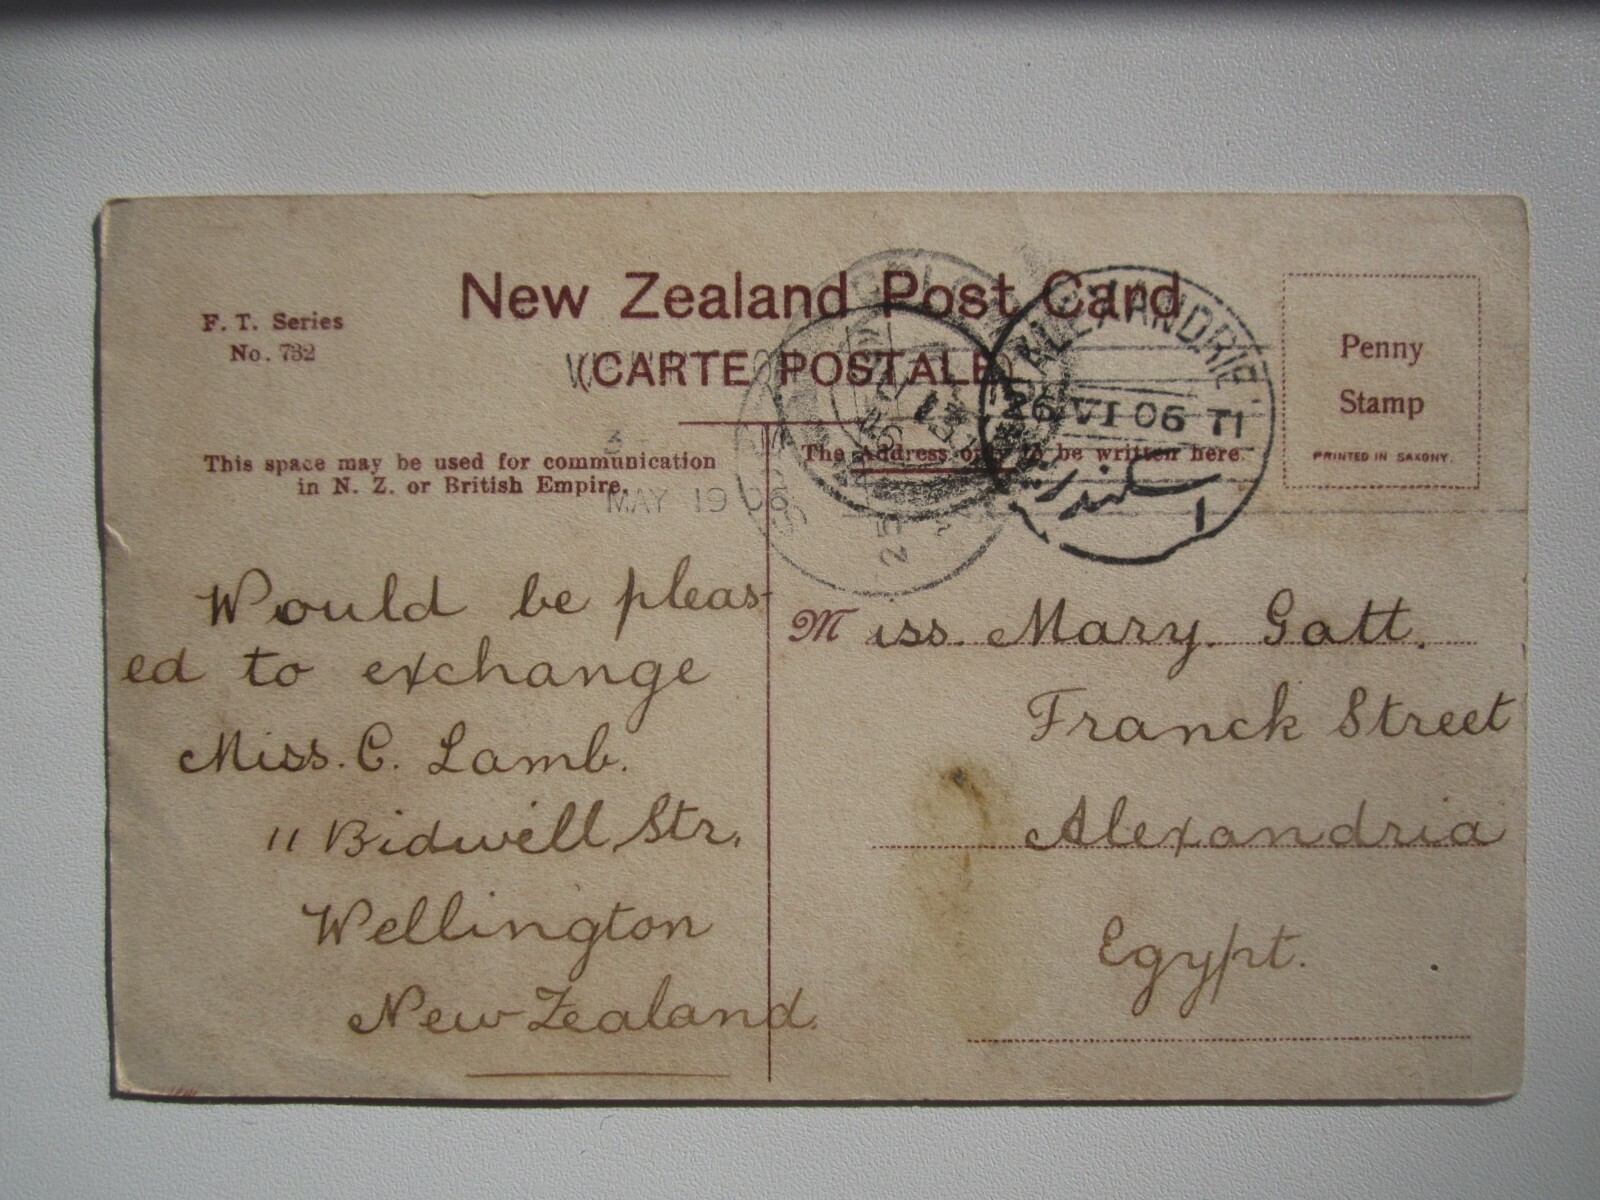 New Zealand Post Card
(CARTE POSTALE)
F. T. Series
No. 732
Penny
Stamp
PRINTED IN SAXONY.
This space may be used for communication
in N. Z. or British Empire.
The Address only to be written here.
MAY 19 06
ALEXANDRIE
26 VI 06 T1
Would be pleas-
ed to exchange
Miss. C. Lamb.
11 Bidwell Str.
Wellington
New Zealand.
Miss. Mary. Gatt.
Franck Street
Alexandria
Egypt.